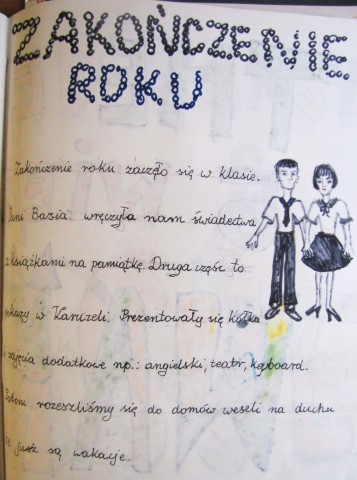 ZAKOŃCZENIE
ROKU
Zakończenie roku zaczęło się w klasie.
Pani Basia wręczyła nam świadectwa
z książkami na pamiątkę. Druga część to
pokazy w Karuzeli. Prezentowały się kółka
i zajęcia dodatkowe np.: angielski, teatr, keyboard.
Potem rozeszliśmy się do domów weseli na duchu
że już są wakacje.